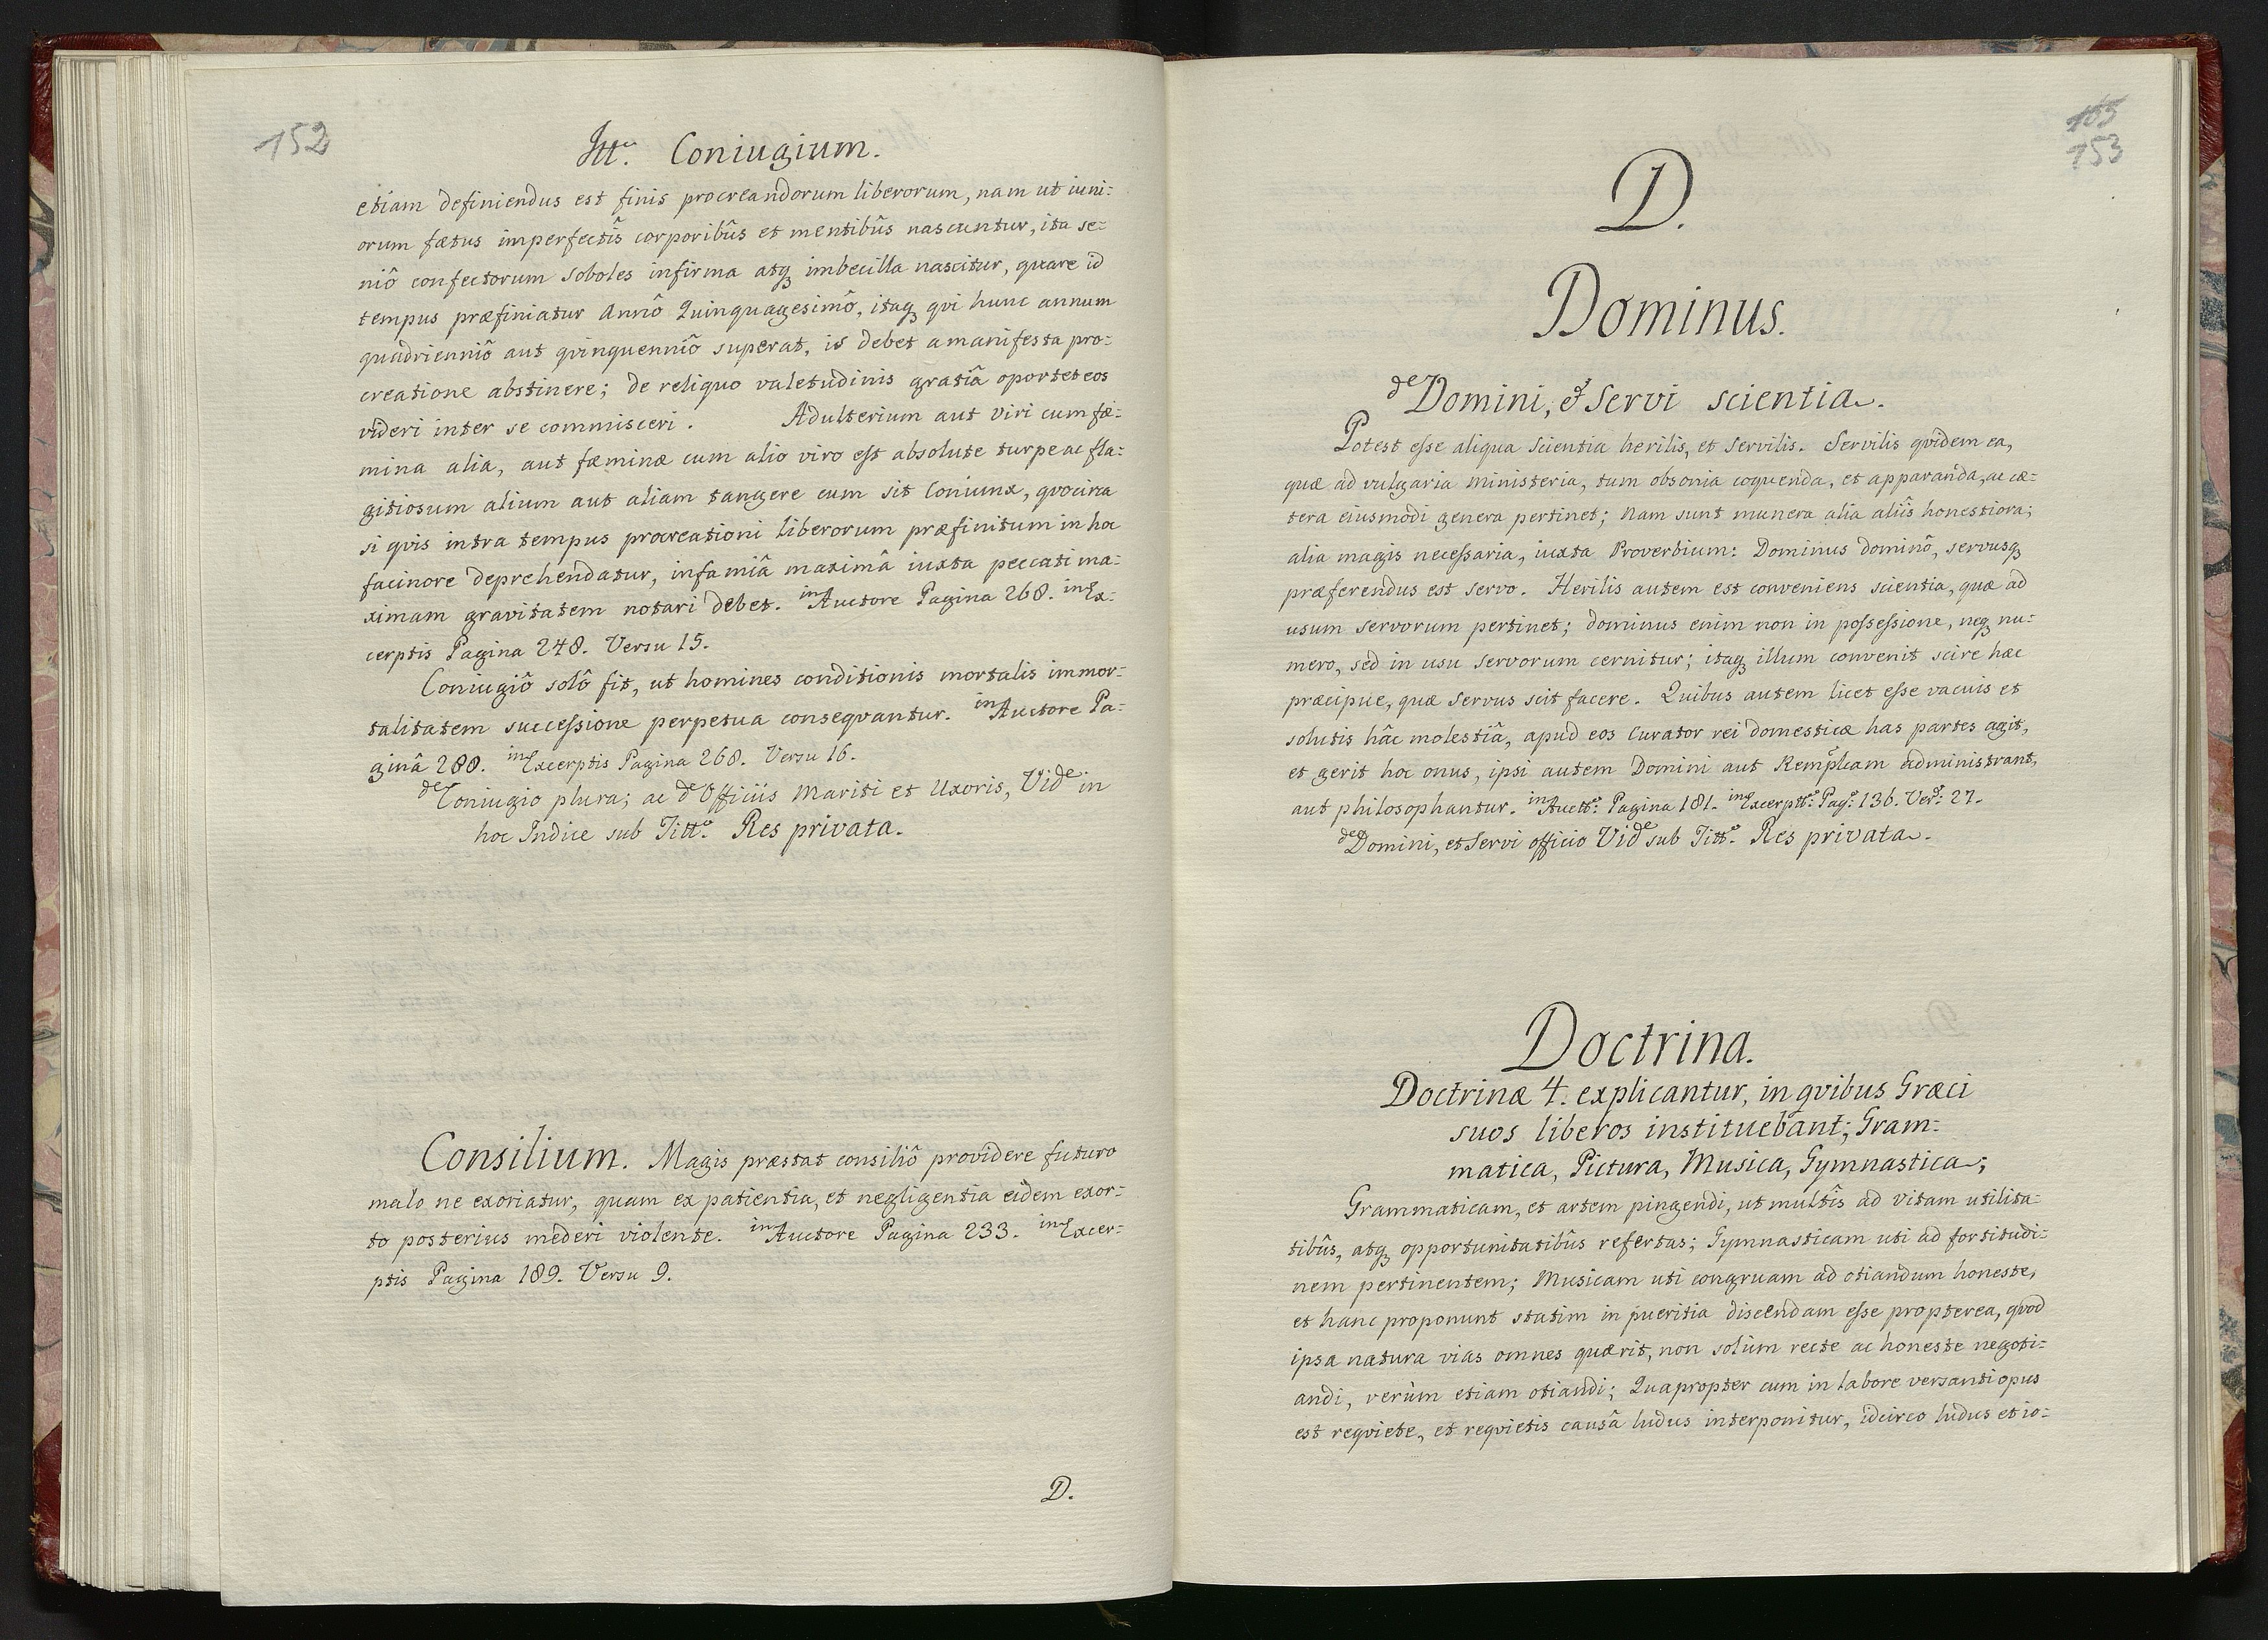 152
Titt. Coniugium.
etiam definiendus est finis procreandorum liberorum, nam ut iuni:
orum fætus imperfectîs corporibûs et mentibûs nascuntur, ita se:
niô confectorum soboles infirma atq imbecilla nascitur, quare id
tempus præfiniatur Annô Quinquagesimô, itaq qvi hunc annum
quadrienniô aut qvinquenniô superat, is debet a manifesta pro:
creatione abstinere; de reliquo valetudinis gratiâ oportet eos
videri inter se commisceri. Adulterium aut viri cum fæ:
mina alia, aut fæminæ cum alio viro est absolute turpe ac fla:
gitiosum alium aut aliam tangere cum sit Coniunx, qvocirca
si qvis intra tempus procreationi liberorum præfinitum in hoc
facinore deprehendatur, infamiâ maximâ iuxta peccati ma:
ximam gravitatem notari debet. in Auctore Pagina 268. in Ex:
cerptis Pagina 248. Versu 15.
Coniugiô solô fit, ut homines conditionis mortalis immor:
talitatem successione perpetua conseqvantur. in Auctore Pa:
ginâ 288. in Excerptis Pagina 268. Versu 16.
de Coniugio plura; ac de Officiis Mariti et Uxoris, Vide in
hoc Indice sub Titto. Res privata.
Consilium. Magis præstat consiliô providere futuro
malo ne exoriatur, quam ex patientia, et negligentia eidem exor:
to posterius mederi violente. in Auctore Pagina 233. in Excer:
ptis Pagina 189. Versu 9.
D.
165
153
D.
Dominus.
de Domini, et Servi scientia.
Potest esse aliqua scientia herilis, et servilis. Servilis qvidem ea,
quæ ad vulgaria ministeria, tum obsonia coquenda, et apparanda, ac cæ:
tera eiusmodi genera pertinet; Nam sunt munera alia aliîs honestiora;
alia magis necessaria, iuxta Proverbium: Dominus dominô, servusq
præferendus est servo. Herilis autem est conveniens scientia, quæ ad
usum servorum pertinet; dominus enim non in possessione, neq nu:
mero, sed in usu servorum cernitur; itaq illum convenit scire hæc
præcipue, quæ servus scit facere. Quibus autem licet esse vacuis et
solutis hâc molestiâ, apud eos Curator rei domesticæ has partes agit,
et gerit hoc onus, ipsi autem Domini aut Rempbcam administrant,
aut philosophantur. in Auctt: Pagina 181. in Excerptt: Pag: 136. Vers: 27.
de Domini, et Servi officio Vide sub Titto. Res privata.
Doctrina.
Doctrinæ 4. explicantur, in qvibus Græci
suos liberos instituebant; Gram:
matica, Pictura, Musica, Gymnastica;
Grammaticam, et artem pingendi, ut multîs ad vitam utilita:
tibûs, atq opportunitatibûs refertas; Gymnasticam uti ad fortitudi:
nem pertinentem; Musicam uti congruam ad otiandum honeste,
et hanc proponunt statim in pueritia discendam esse propterea, qvod
ipsa natura vias omnes quærit, non solùm recte ac honeste negoti:
andi, verùm etiam otiandi; Quapropter cum in labore versanti opus
est reqviete, et reqvietis causâ ludus interponitur, idcirco ludus et io: